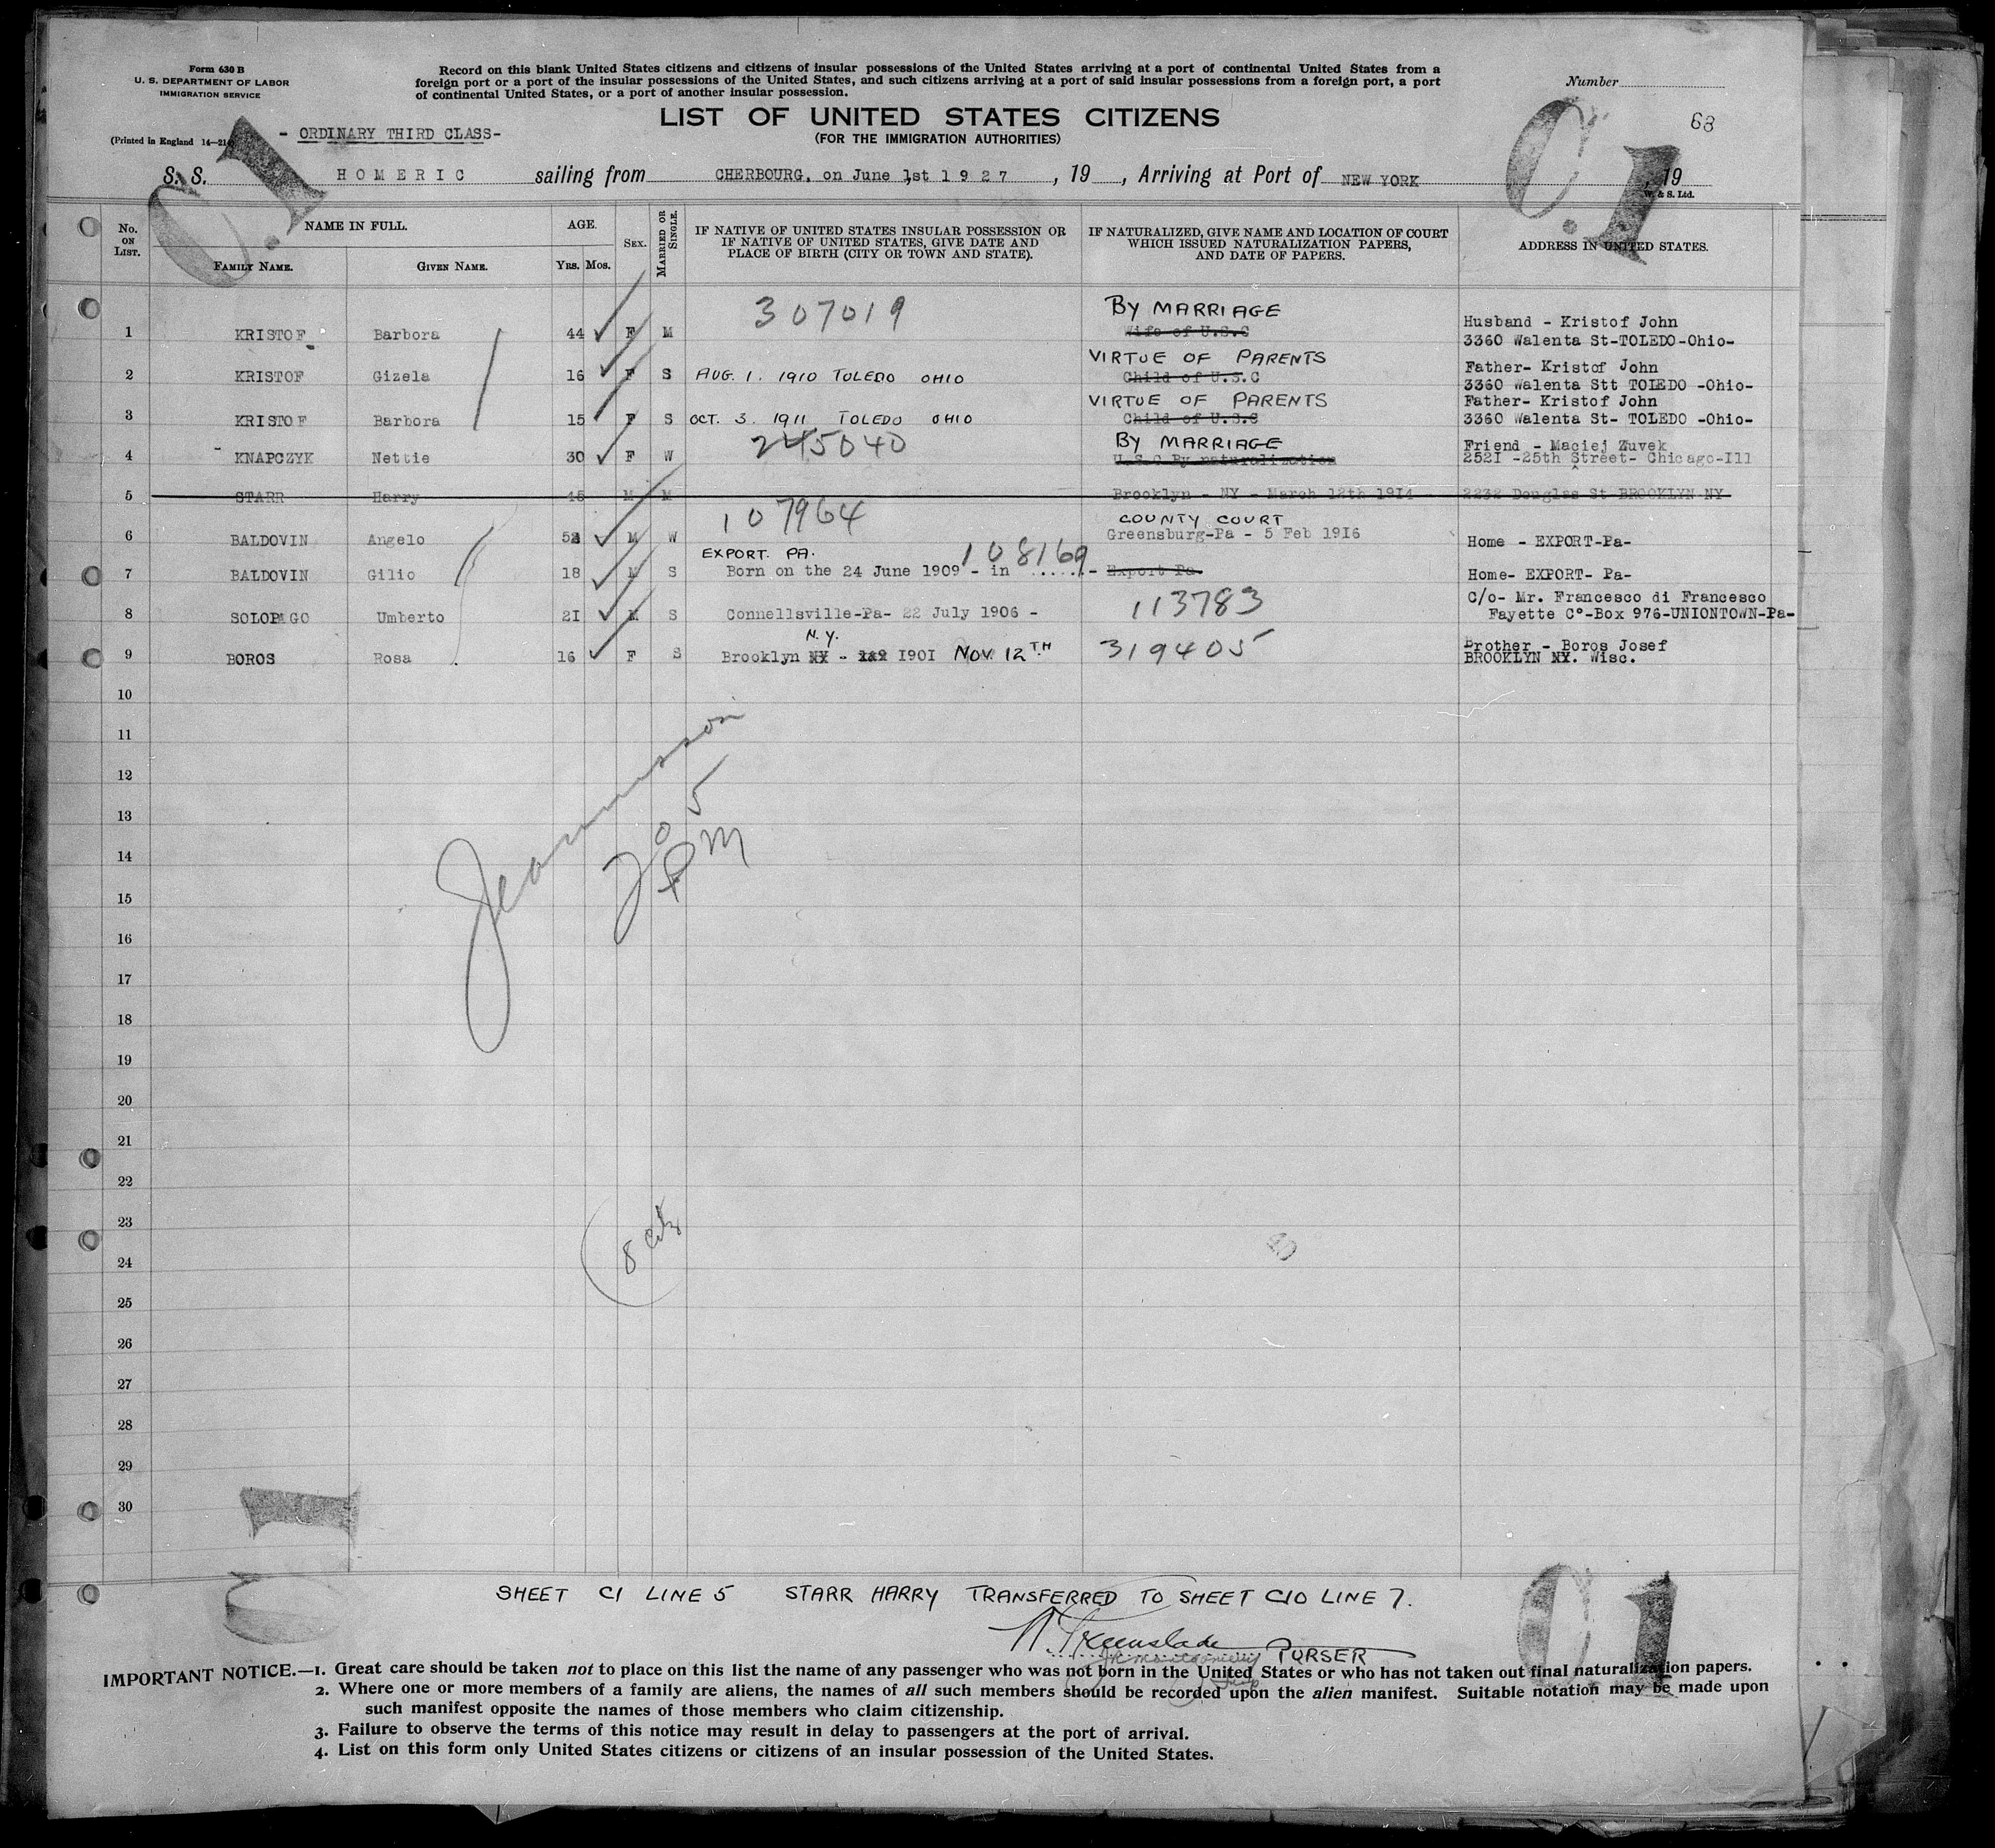 Form 630 B
U. S. DEPARTMENT OF LABOR
IMMIGRATION SERVICE
(Printed in England 14—214)
Record on this blank United States citizens and citizens of insular possessions of the United States arriving at a port of continental United States from a
foreign port or a port of the insular possessions of the United States, and such citizens arriving at a port of said insular possessions from a foreign port, a port
of continental United States, or a port of another insular possession.
Number
68
C.1
C.1
LIST OF UNITED STATES CITIZENS
(FOR THE IMMIGRATION AUTHORITIES)
- ORDINARY THIRD CLASS-
S. S. HOMERIC sailing from CHERBOURG, on June 1st 1927, 19 , Arriving at Port of NEW YORK , 19
W. & S. Ltd.
No. ON LIST. NAME IN FULL. AGE. SEX. MARRIED OR SINGLE. IF NATIVE OF UNITED STATES INSULAR POSSESSION OR IF NATIVE OF UNITED STATES, GIVE DATE AND PLACE OF BIRTH (CITY OR TOWN AND STATE). IF NATURALIZED, GIVE NAME AND LOCATION OF COURT WHICH ISSUED NATURALIZATION PAPERS, AND DATE OF PAPERS. ADDRESS IN UNITED STATES.
FAMILY NAME. GIVEN NAME. YRS. MOS.
307019 BY MARRIAGE Husband - Kristof John
1 KRISTOF Barbora 44 F M Wife of U.S.C 3360 Walenta St-TOLEDO-Ohio-
VIRTUE OF PARENTS Father- Kristof John
2 KRISTOF Gizela 16 F S AUG. 1. 1910 TOLEDO OHIO Child of U.S.C 3360 Walenta Stt TOLEDO -Ohio-
VIRTUE OF PARENTS Father- Kristof John
3 KRISTOF Barbora 15 F S OCT. 3. 1911 TOLEDO OHIO Child of U.S.C 3360 Walenta St- TOLEDO -Ohio-
245040 BY MARRIAGE Friend - Maciej Zuvek
4 KNAPCZYK Nettie 30 F W U.S.C By naturalization 2521 -25th Street- Chicago-Ill
5 STARR Harry 45 M M Brooklyn - NY - March 12th 1914 2232 Douglas St BROOKLYN NY
107964 COUNTY COURT
6 BALDOVIN Angelo 53 M W Greensburg-Pa - 5 Feb 1916 Home - EXPORT-Pa-
EXPORT. PA. 108169
7 BALDOVIN Gilio 18 M S Born on the 24 June 1909 - in ......- Export Pa. Home- EXPORT- Pa-
C/o- Mr. Francesco di Francesco
8 SOLOPAGO Umberto 21 M S Connellsville-Pa- 22 July 1906 - 113783 Fayette C°-Box 976-UNIONTOWN-Pa-
N.Y. Brother - Boros Josef
9 BOROS Rosa 16 F S Brooklyn NY - 1901 NOV. 12TH 319405 BROOKLYN NY. Wisc.
10
11
12
13
14
15
16
17
18
19
20
21
22
23
24
25
26
27
28
29
30
205
PM
8 citz
40
C1
SHEET C1 LINE 5 STARR HARRY TRANSFERRED TO SHEET C10 LINE 7.
N. Greenslade PURSER
IMPORTANT NOTICE.—1. Great care should be taken not to place on this list the name of any passenger who was not born in the United States or who has not taken out final naturalization papers.
2. Where one or more members of a family are aliens, the names of all such members should be recorded upon the alien manifest. Suitable notation may be made upon
such manifest opposite the names of those members who claim citizenship.
3. Failure to observe the terms of this notice may result in delay to passengers at the port of arrival.
4. List on this form only United States citizens or citizens of an insular possession of the United States.